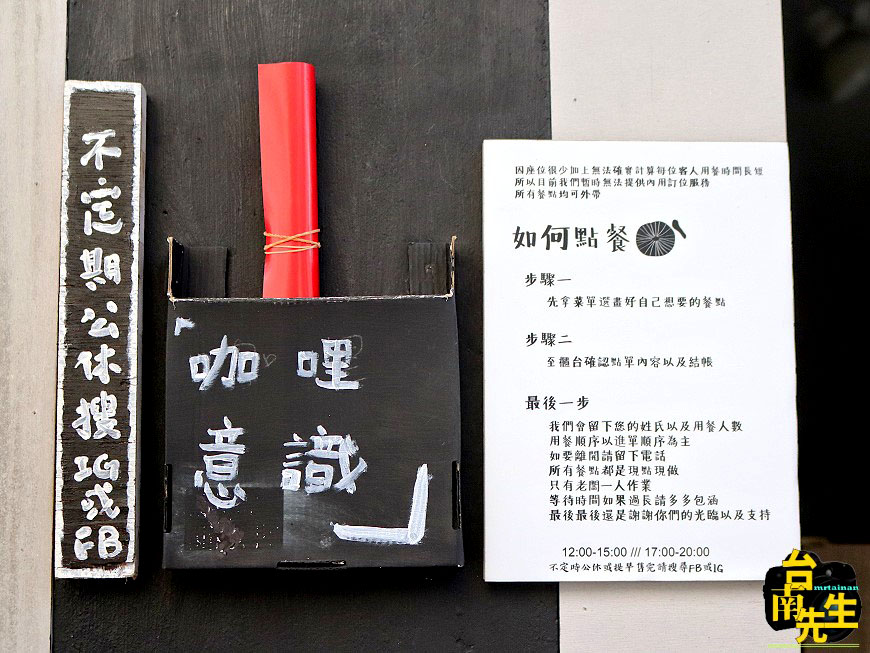 不定期公休搜IG或FB
「咖哩
意識」
因座位很少加上無法確實計算每位客人用餐時間長短
所以目前我們暫時無法提供內用訂位服務
所有餐點均可外帶
如何點餐
步驟一
先拿菜單選畫好自己想要的餐點
步驟二
至櫃台確認點單內容以及結帳
最後一步
我們會留下您的姓氏以及用餐人數
用餐順序以進單順序為主
如要離開請留下電話
所有餐點都是現點現做
只有老闆一人作業
等待時間如果過長請多多包涵
最後最後還是謝謝你們的光臨以及支持
12:00-15:00 /// 17:00-20:00
不定時公休或提早售完請搜尋FB或IG
mrtainan
台南先生